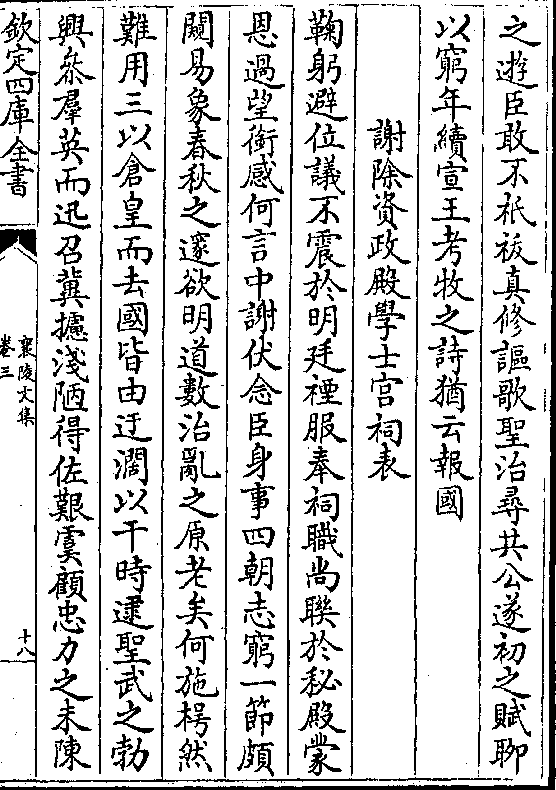 之遊臣敢不祇祓真修謳歌聖治尋共公遂初之賦聊
以窮年續宣王考牧之詩猶云報國
謝除資政殿學士宮祠表
鞠躬避位議不震於明廷禋服奉祠職尚聯於秘殿蒙
恩過望銜感何言中謝伏念臣身事四朝志窮一節頗
闚易象春秋之邃欲明道數治亂之原老矣何施枵然
難用三以倉皇而去國皆由迂濶以干時逮聖武之勃
興叅羣英而迅召冀攄淺陋得佐艱虞顧忠力之未陳
欽定四庫全書
襄陵文集
卷三
十八